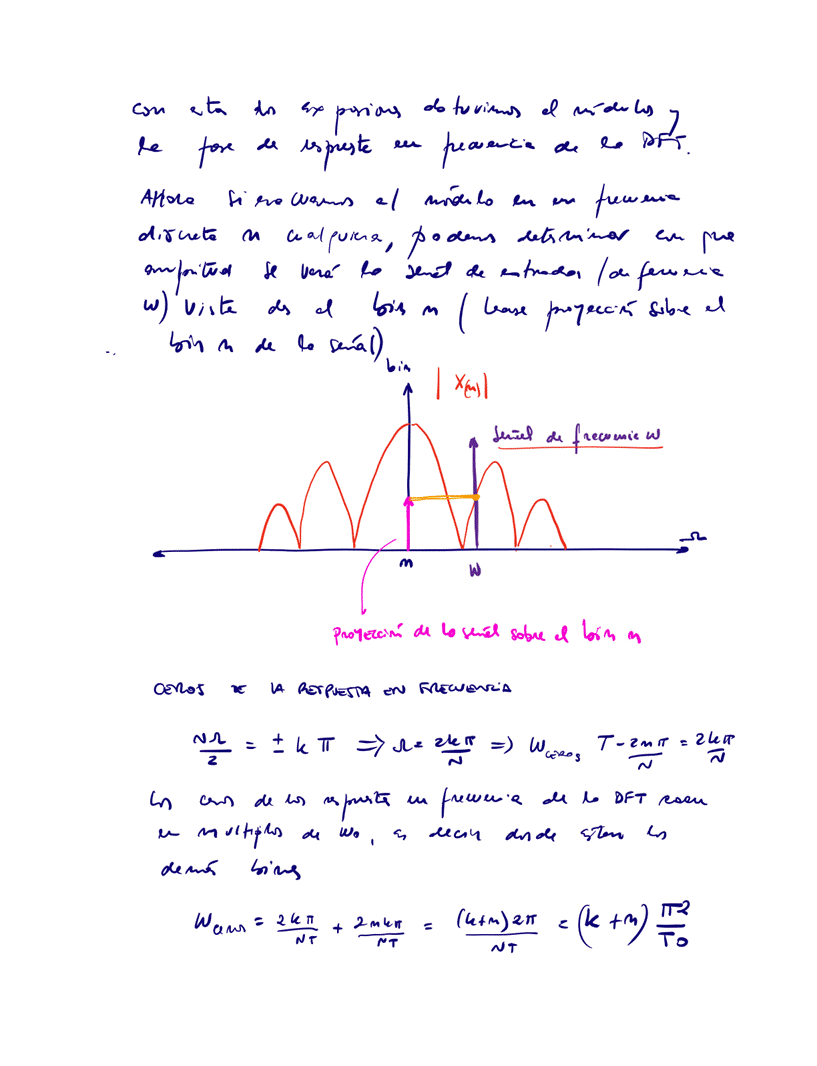 con esta dos expresiones obtuvimos el módulos y
la fase de respuesta en frecuencia de la DFT.
Ahora si evaluamos el módulo en una frecuencia
discreta n cualquiera, podemos determinar con que
amplitud se verá la señal de entrada (de frecuencia
W) vista des el bin n (léase proyección sobre el
bin n de la señal)
bin
| X(n) |
señal de frecuencia W
Ω
n
W
proyección de la señal sobre el bin n
CEROS DE LA RESPUESTA EN FRECUENCIA
NΩ/2 = ± k π ⇒ Ω = 2kπ/N ⇒ W ceros T - 2nπ/N = 2kπ/N
Los ceros de la respuesta en frecuencia de la DFT caen
en multiplos de W₀, es decir donde estan los
demás bines
W ceros = 2kπ/NT + 2nkπ/NT = (k+n)2π/NT = (k+n) π2/T0